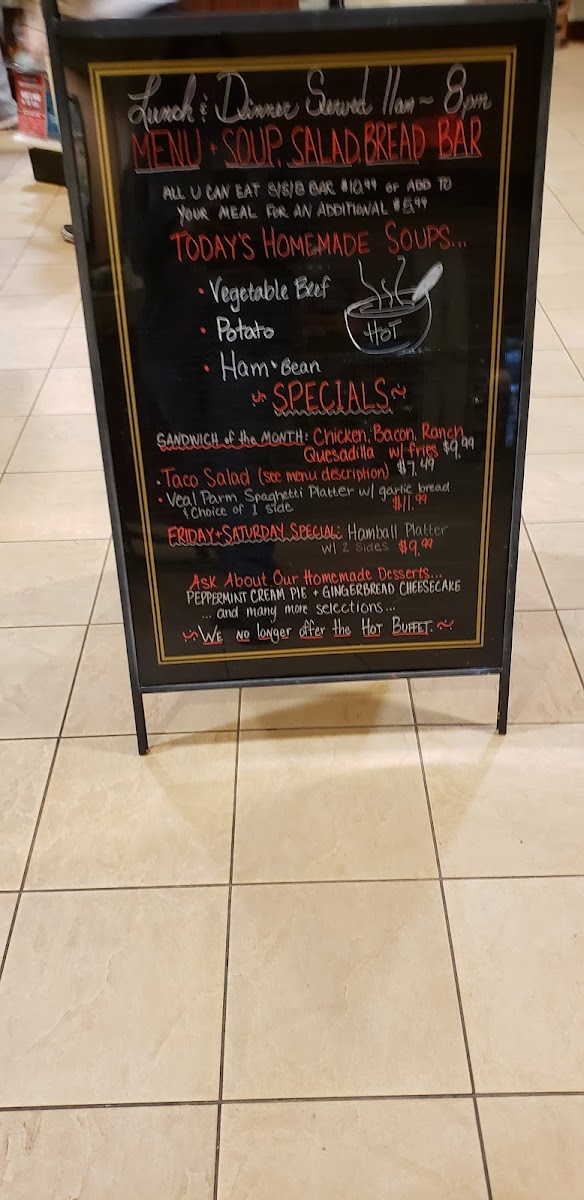 Lunch & Dinner Served 11am ~ 8pm
MENU + SOUP, SALAD, BREAD BAR
ALL U CAN EAT S/S/B BAR $10.99 or ADD TO
YOUR MEAL FOR AN ADDITIONAL $6.99
TODAY'S HOMEMADE SOUPS...
• Vegetable Beef
• Potato
HOT
• Ham * Bean
~ SPECIALS ~
SANDWICH of the MONTH: Chicken, Bacon, Ranch
Quesadilla w/ fries $9.99
• Taco Salad (see menu description) $7.49
• Veal Parm Spaghetti Platter w/ garlic bread
& Choice of 1 side $11.99
FRIDAY + SATURDAY SPECIAL: Hamball Platter
w/ 2 sides $9.99
Ask About Our Homemade Desserts...
PEPPERMINT CREAM PIE + GINGERBREAD CHEESECAKE
... and many more selections...
~ WE no longer offer the HOT BUFFET. ~